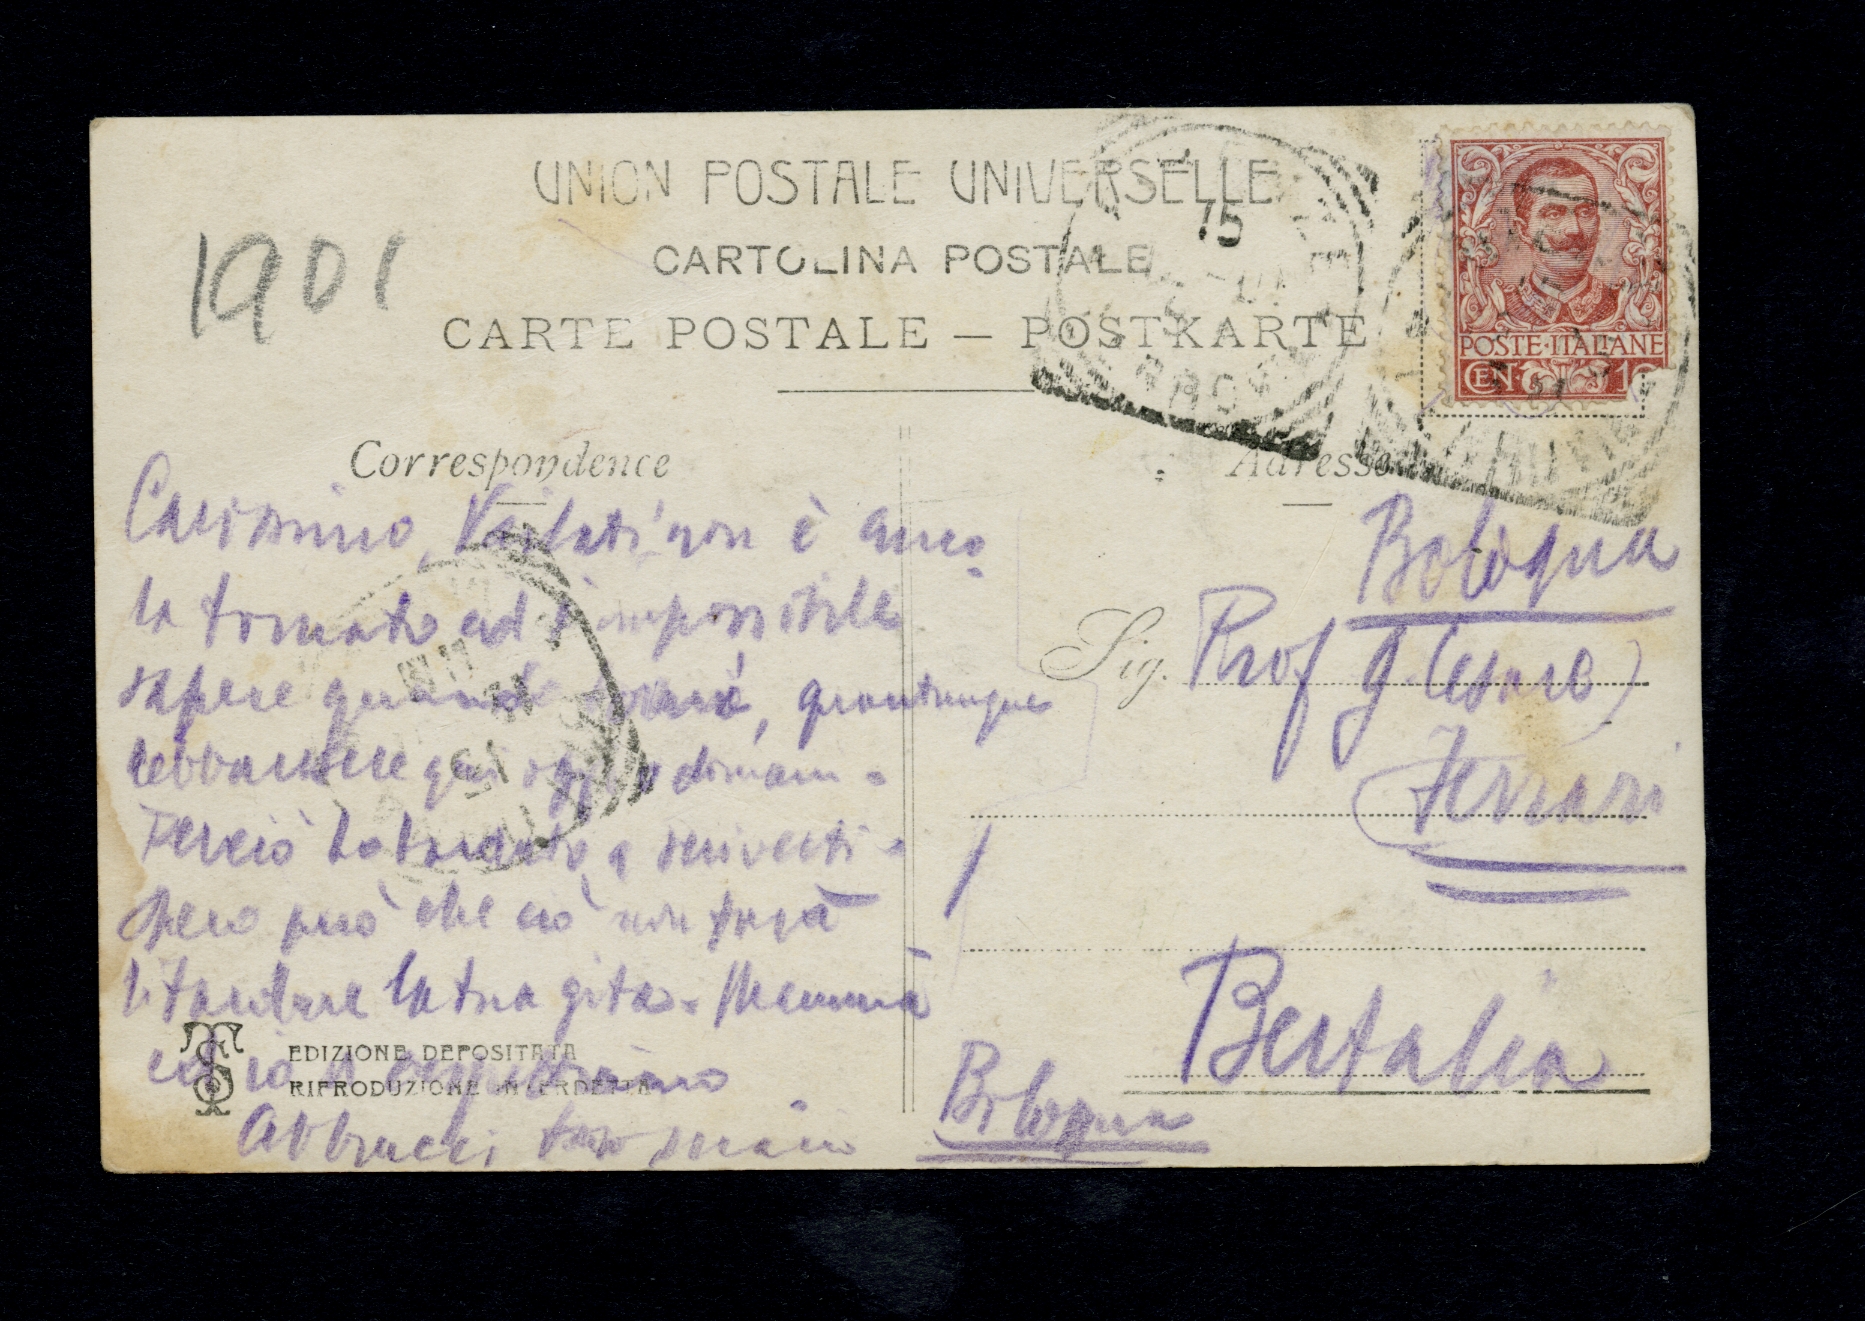 UNION POSTALE UNIVERSELLE
CARTOLINA POSTALE
CARTE POSTALE — POSTKARTE
1901
15
POSTE·ITALIANE
CEN 10
Correspondence
Carissimo, Vailati non è anco-
ra tornato ed è impossibile
sapere quando tornerà, quantunque
debba essere qui oggi o domani.
Perciò ho tardato a scriverti.
Spero però che ciò non farà
ritardare la tua gita. Mamma
ed io ti aspettiamo
Abbracci tuo
EDIZIONE DEPOSITATA
RIPRODUZIONE INTERDETTA
Adresse
Bologna
Sig. Prof G (Cesare)
Ferrari
Bertalia
Bologna